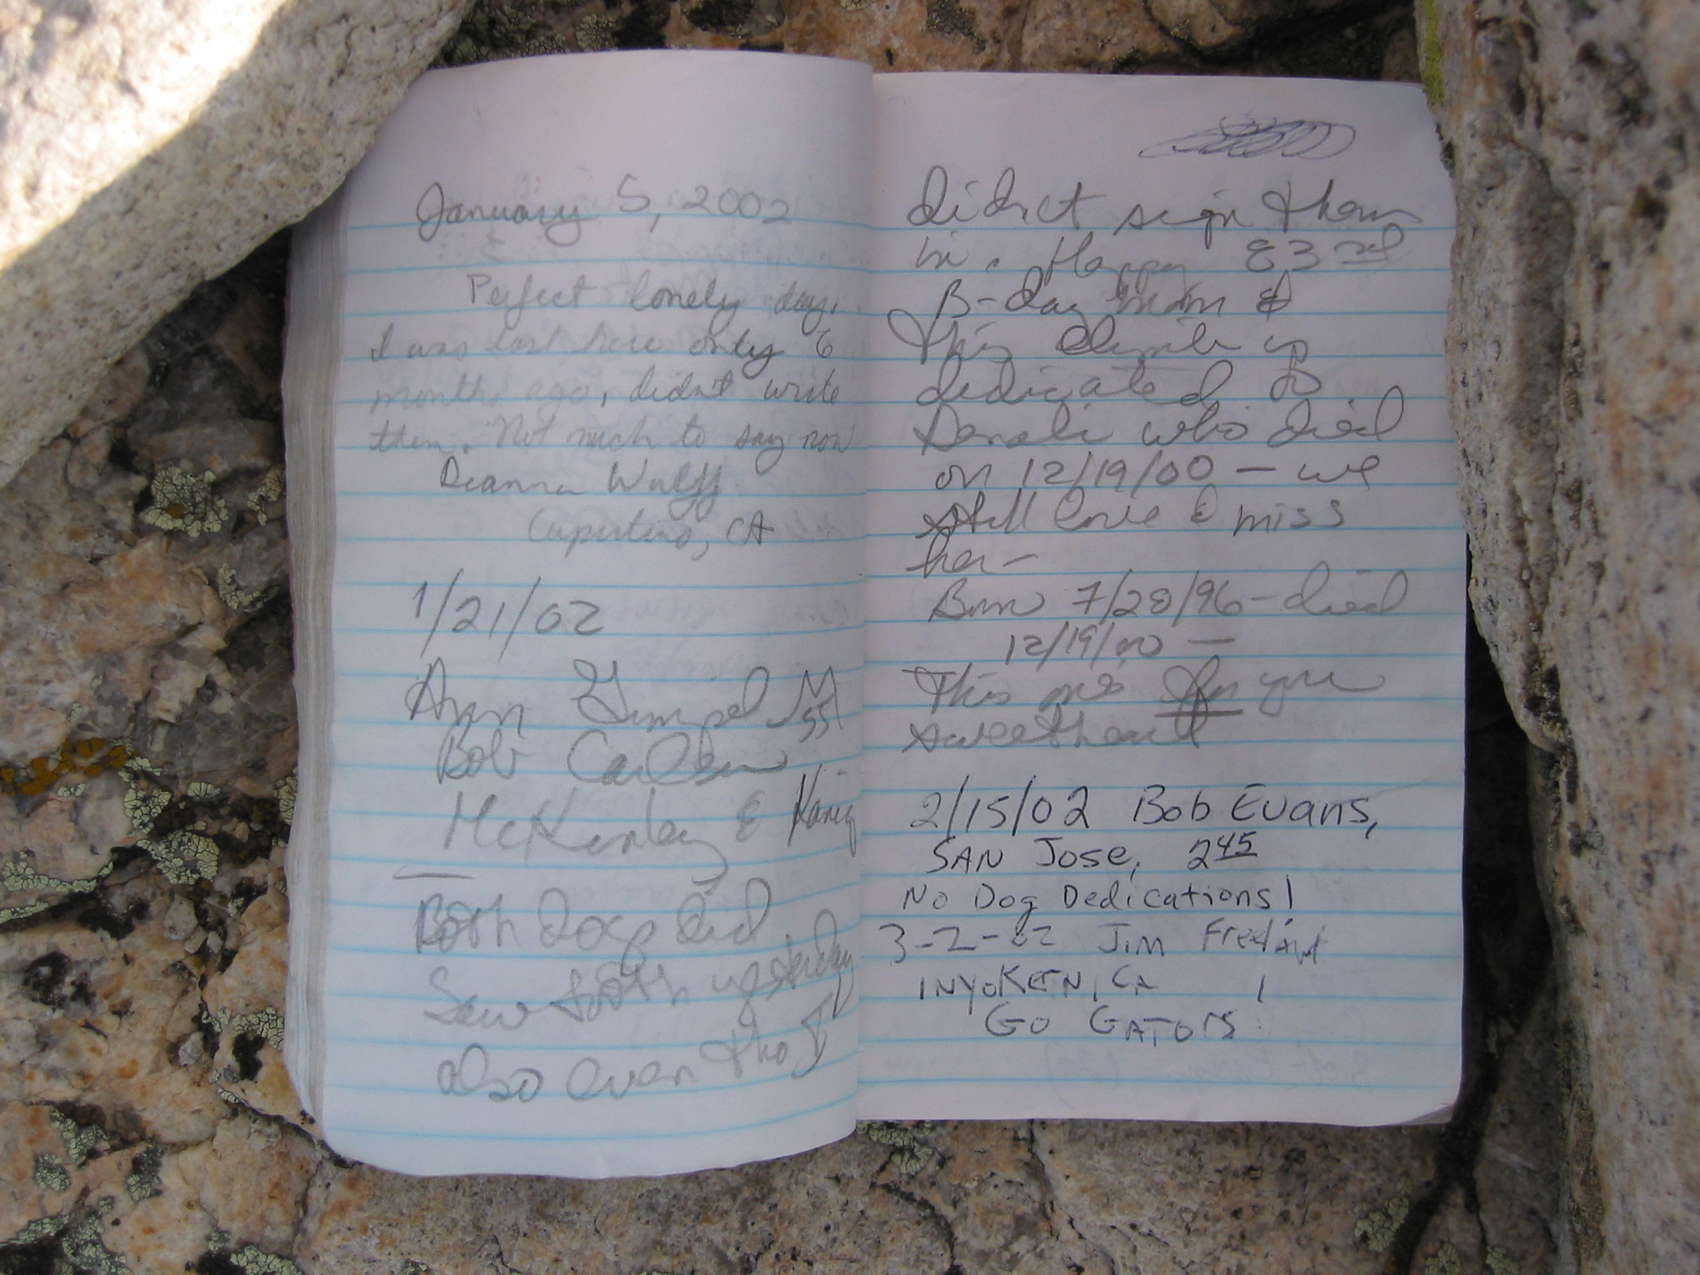 January 5, 2002
Perfect lonely day.
I was last here only 6
months ago, didn't write
then. Not much to say now
Deanna Wulff
Cupertino, CA
1/21/02
Ann Gimpel
Bob Carlson
McKinley &
Both dogs did
Sawtooth yesterday
also even tho I
didn't sign them
in. Happy 83rd
B-day mom &
This climb is
dedicated to
Denali who died
on 12/19/00 — we
still love & miss
her—
Born 7/28/96 - died
12/19/00 —
This one's for you
sweetheart
2/15/02 Bob Evans,
SAN Jose, 245
No Dog Dedications!
3-2-02 Jim
INYOKERN, CA
GO GATORS